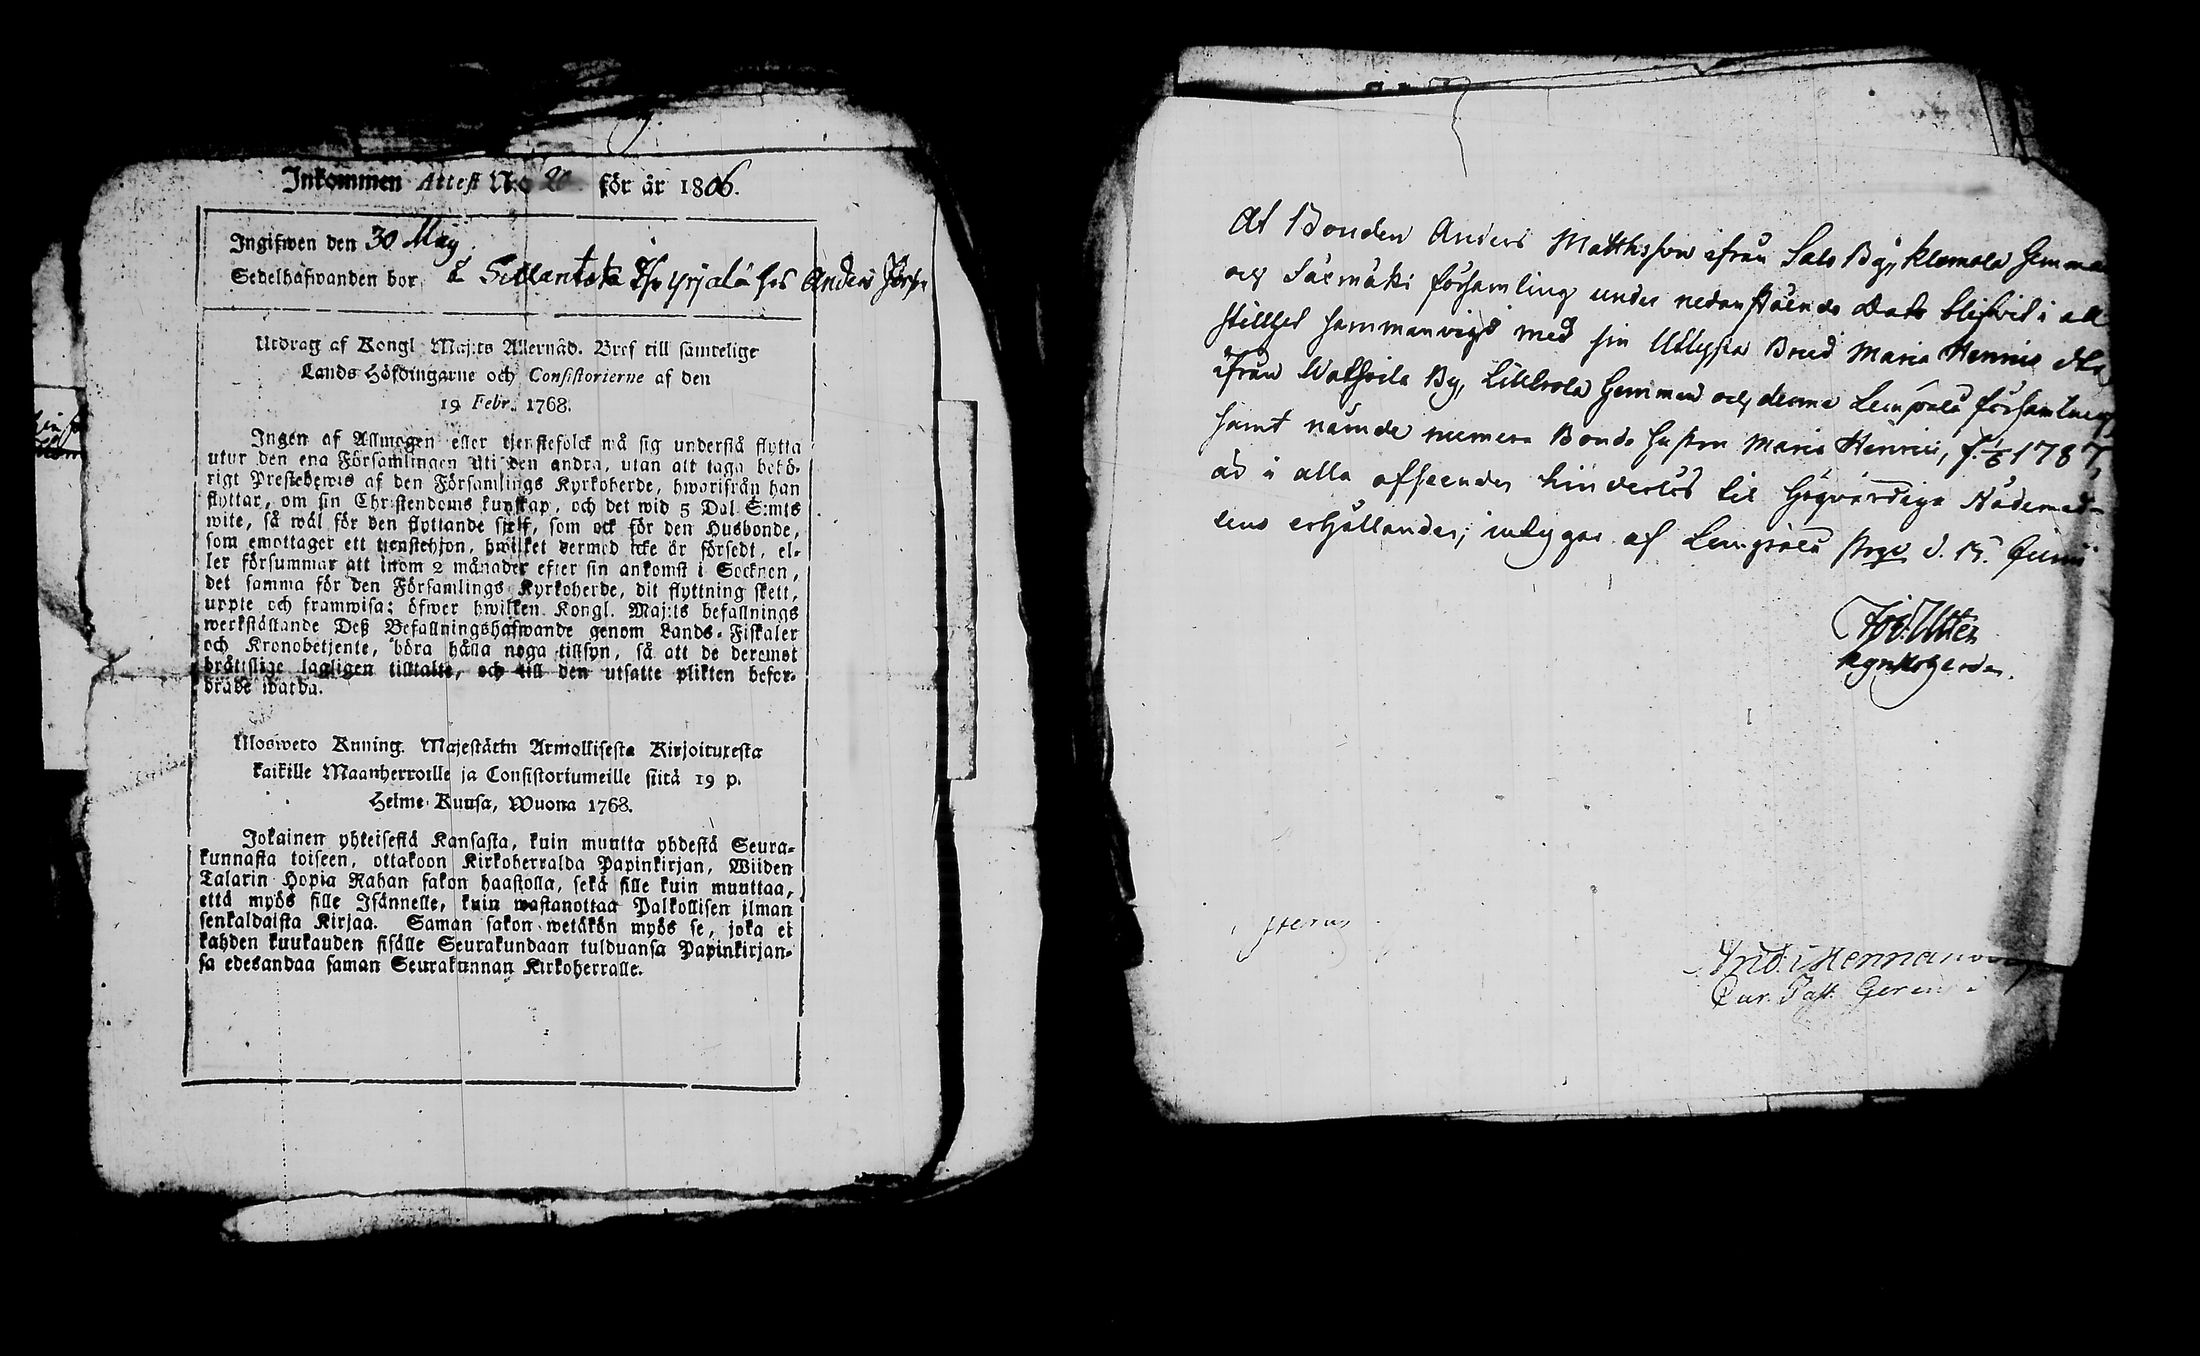 Inkommen Attest N:o 20 för år 1806.
Ingifwen den 30 Maij.
Sedelhafwanden bor i Sillantaka Yrjälä hos Anders
Utdrag af Kongl. Maj:ts Allernåd. Bref till samtelige
Lands Höfdingarne och Consistorierne af den
19 Febr. 1768.
Ingen af Allmogen eller tjenstefolck må sig understå flytta
utur den ena Församlingen uti den andra, utan att taga behö-
rigt Prestebewis af den Församlings Kyrkoherde, hwarifrån han
flyttar, om sin Christendoms kunskap, och det wid 5 Dal. S:mts
wite, så wäl för den flyttande sjelf, som ock för den Husbonde,
som emottager ett tjenstehjon, hwilket dermed icke är försedt, el-
ler försummar att inom 2 månader efter sin ankomst i Socknen,
det samma för den Församlings Kyrkoherde, dit flyttning skett,
uppte och framwisa; öfwer hwilken Kongl. Maj:ts befallnings
werkställande Deß Befallningshafwande genom Lands-Fiskaler
och Kronobetjente, böra hålla noga tillsyn, så att de deremot
bråttslige lagligen tilltalte, och till den utsatte plikten befor-
drade warda.
Ulosweto Kuning. Majestätin Armollisesta Kirjoituxesta
kaikille Maanherroille ja Consistoriumeille siitä 19 p.
Helme-Kuusa, Wuona 1768.
Jokainen yhteisestä Kansasta, kuin muutta yhdestä Seura-
kunnasta toiseen, ottakoon Kirkoherralda Papinkirjan, Wiiden
Talarin Hopia Rahan sakon haastolla, sekä sille kuin muuttaa,
että myös sille Isännelle, kuin wastanottaa Palkollisen ilman
senkaldaista Kirjaa. Saman sakon wetäkön myös se, joka ei
kahden kuukauden sisälle Seurakundaan tulduansa Papinkirjan-
sa edesandaa saman Seurakunnan Kirkoherralle.
At Bonden Anders Matthsson ifrån Salo By, Klemola Hemman
och Säxmäki församling under nedanstående Dato blifvit i all
stillhet sammanvigd med sin Utlysta Brud Maria Henrics dtr
ifrån Wakkoila By, Hemman och denna Lempälä församling,
samt nämde numera Bonde hustru Maria Henrics, f. 1787,
är i alla afseenden hinderlös til Högvärdiga Nådemed-
lens erhållande; intygar af Lempälä d. 15. Junii
Kyrkoherde.